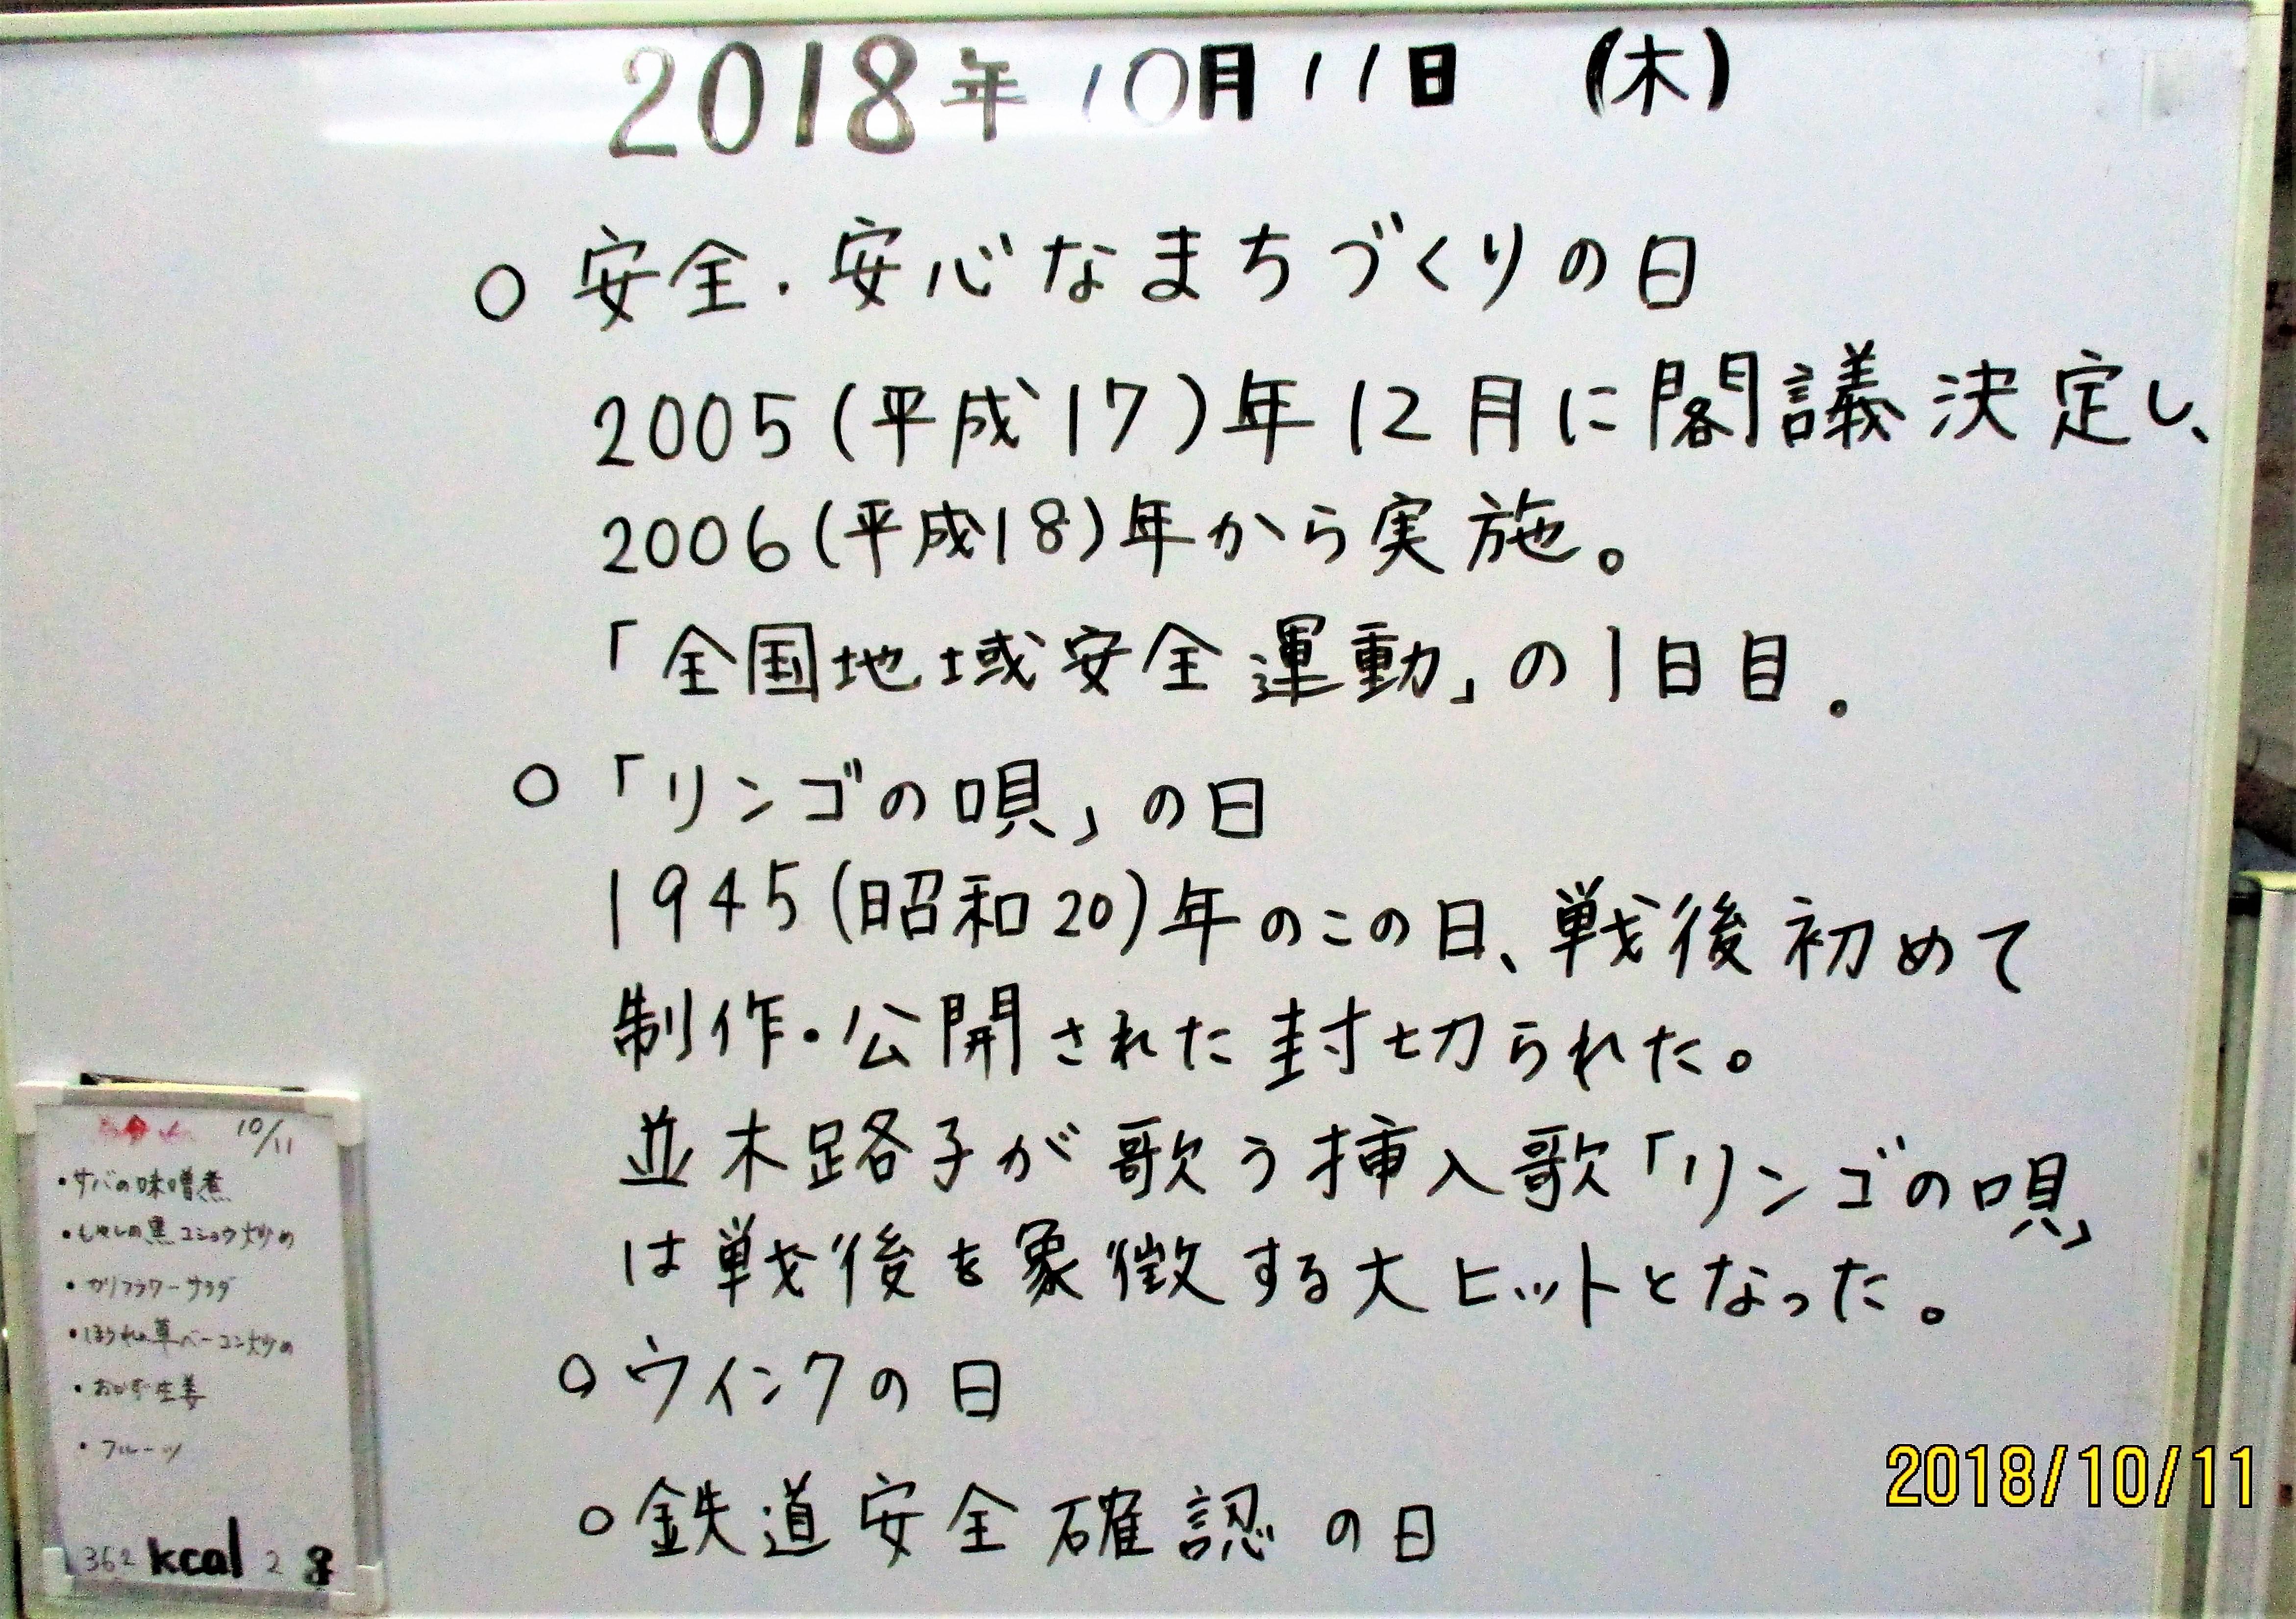 2018年 10月11日 (木)
○ 安全・安心なまちづくりの日
2005(平成17)年12月に閣議決定し、
2006(平成18)年から実施。
「全国地域安全運動」の1日目.
○「リンゴの唄」の日
1945(昭和20)年のこの日、戦後初めて
制作・公開された封切られた。
並木路子が歌う挿入歌「リンゴの唄」
は戦後を象徴する大ヒットとなった。
○ウインクの日
○鉄道安全確認の日
10/11
・サバの味噌煮
・もやしの黒コショウ炒め
・カリフラワーサラダ
・ほうれん草ベーコン炒め
・おかず生姜
・フルーツ
362 kcal 2
2018/10/11